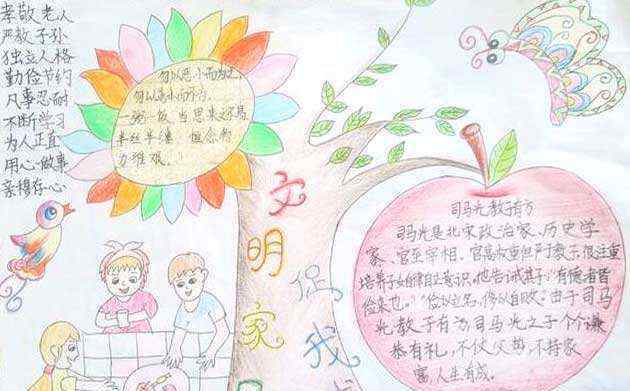 孝敬老人
严教子孙
独立人格
勤俭节约
凡事忍耐
不断学习
为人正直
用心做事
亲穆存心
勿以恶小而为之
勿以善小而不为
一粥一饭，当思来之不易
半丝半缕，恒念物
力维艰。
文明家
促我
司马光教子有方
司马光是北宋政治家、历史学
家、官至宰相。官高权重但严于教子，很注重
培养子女自律自立意识，他告诫其子："有德者皆
俭来也。""俭以立名，侈以自败。"由于司马
光教子有方，司马光之子个个谦
恭有礼，不仗父势，不持家
富，人生有成。